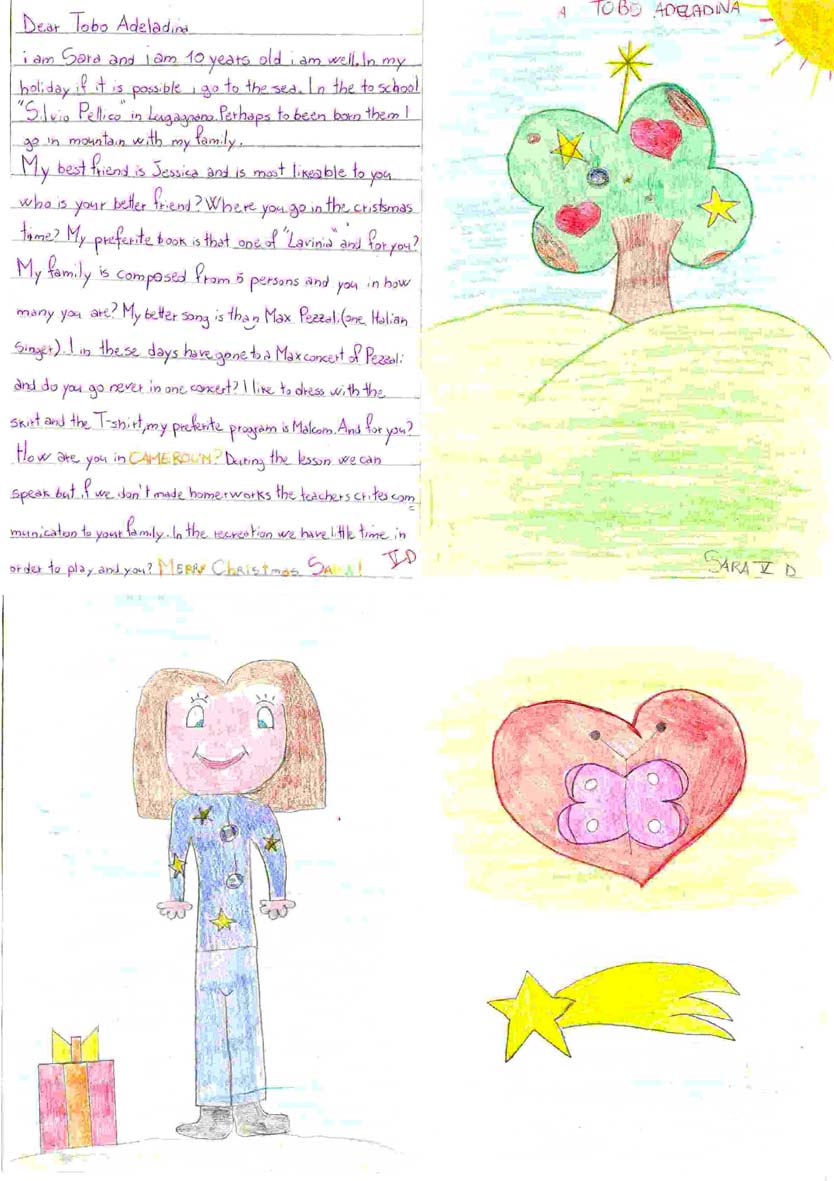 Dear Tobo Adeladina
i am Sara and i am 10 years old i am well. In my
holiday if it is possible i go to the sea. In the to school
"Silvio Pellico" in Lugagnano. Perhaps to been born them I
go in mountain with my family.
My best friend is Jessica and is most likeable to you
who is your better friend? Where you go in the cristsmas
time? My preferite book is that one of "Lavinia" and for you?
My family is composed from 5 persons and you in how
many you are? My better song is than Max Pezzali (one Italian
singer). I in these days have gone to a Max concert of Pezzali
and do you go never in one concert? I like to dress with the
skirt and the T-shirt, my preferite program is Malcom. And for you?
How are you in CAMEROUN? During the lesson we can
speak but if we don't made homerworks the teachers crites com=
municaton to your family. In the recreation we have little time in
order to play and you? MERRY Christmas SARA!
V D
A TOBO ADELADINA
SARA V D